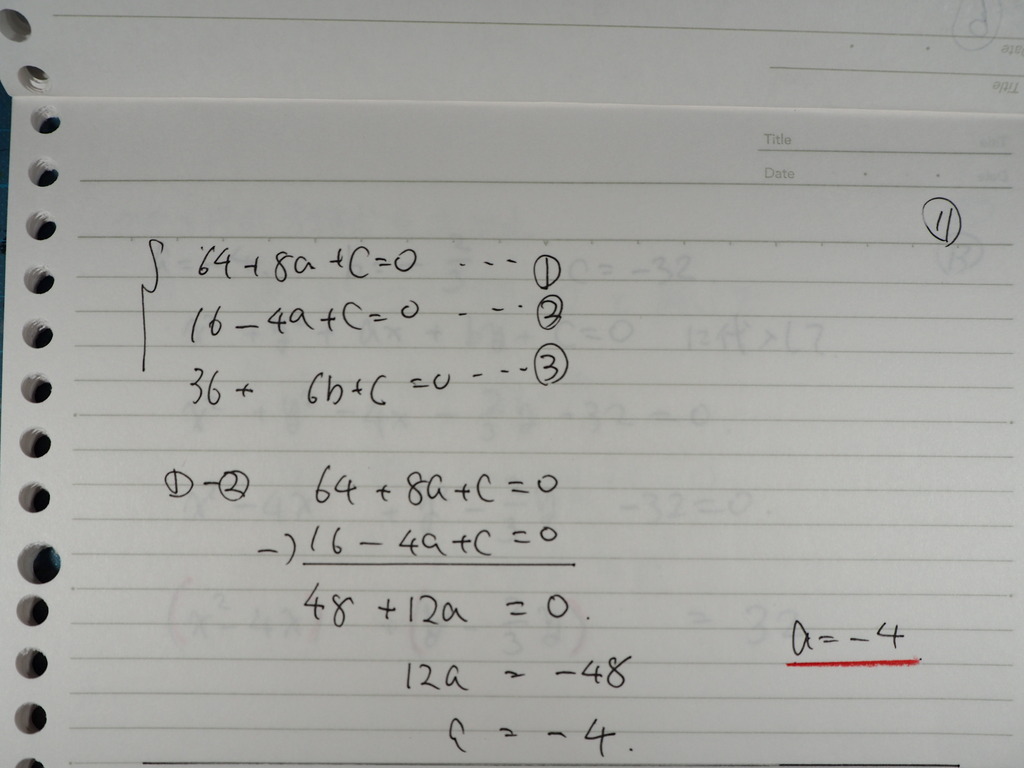 Title
Date
⑪
64+8a+C=0 ---- ①
16-4a+C=0 ---- ②
36+ 6b+C=0 ---- ③
①-② 64+8a+C=0
-)16-4a+C=0
48+12a=0.
a=-4
12a=-48
a=-4.